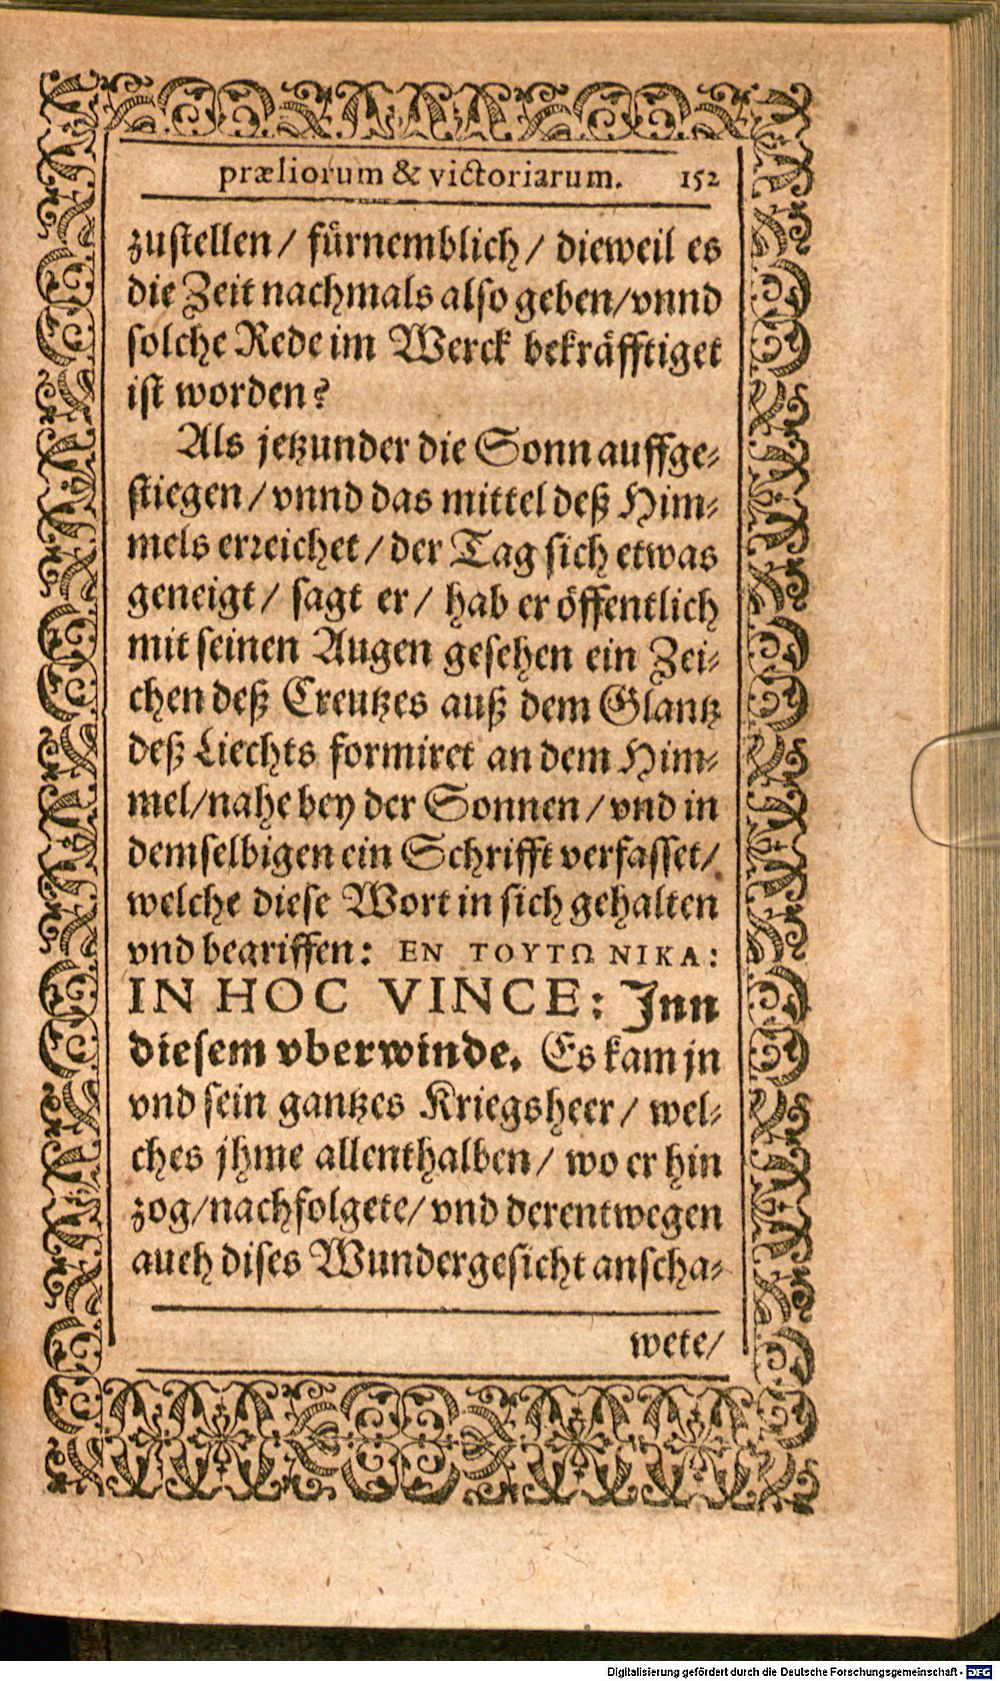 præliorum & victoriarum. 152
zustellen / fürnemblich / dieweil es
die Zeit nachmals also geben/vnnd
solche Rede im Werck bekräfftiget
ist worden?
Als jetzunder die Sonn auffge-
stiegen / vnnd das mittel deß Him-
mels erreichet / der Tag sich etwas
geneigt / sagt er / hab er öffentlich
mit seinen Augen gesehen ein Zei-
chen deß Creutzes auß dem Glantz
deß Liechts formiret an dem Him-
mel/nahe bey der Sonnen / vnd in
demselbigen ein Schrifft verfasset/
welche diese Wort in sich gehalten
vnd begriffen: ΕΝ ΤΟΥΤΩ ΝΙΚΑ:
IN HOC VINCE: Inn
diesem vberwinde. Es kam jn
vnd sein gantzes Kriegsheer / wel-
ches jhme allenthalben / wo er hin
zog/nachfolgete/ vnd derentwegen
aueh dises Wundergesicht anscha-
wete/
Digitalisierung gefördert durch die Deutsche Forschungsgemeinschaft - DFG